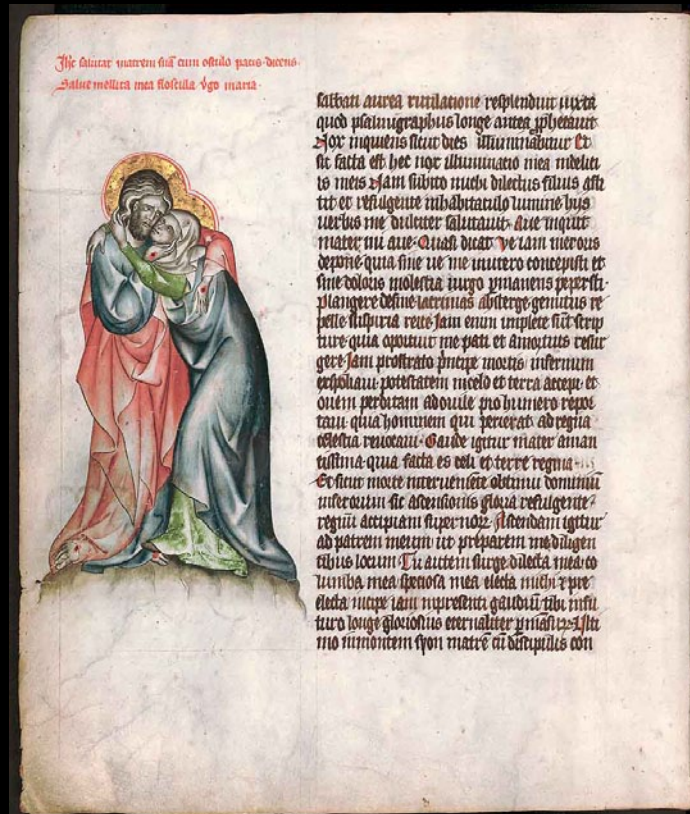 Ihc salutat matrem suā cum osculo pacis dicens
Salue mellita mea floscilla v̊go maria
sabbati aurea rutilatione resplenduit iuxta
quod psalmigraphus longe antea ꝓphetauit
Nox inquiens sicut dies illuminabitur Et
sic facta est hec nox illuminatio mea in delicijs
is meis Nam subito michi dilectus filius asti
tit et refulgente inhabitaculo lumine hijs
uerbis me dulciter salutauit Aue inquit
mater mi aue Quasi dicat ve iam meroris
depone quia sine ve me in utero concepisti et
sine doloris molestia uirgo ꝑmanens peperisti
Plangere desine lacrimas absterge gemitus re
pelle suspiria reice Iam enim implete sūt scrip
ture quia oportuit me pati et amortuis resur
gere Iam prostrato pncipe mortis infernum
exspoliaui potestatem in celo et terra accepi et
ouem perditam adouile pro humero repor
taui quia hominem qui perierat ad regna
celestia reuocaui Gaude igitur mater aman
tissima quia facta es celi et terre regina
Et sicut morte interueniēte obtinui dominiū
inferorum sic ascensionis gloria refulgente
regnū accipiam supernoꝝ Ascendam igitur
ad patrem meum ut preparem me diligen
tibus locum Tu autem surge dilecta mea co
lumba mea speciosa mea electa michi ⁊ pre
electa incipe iam in presenti gaudiū tibi infu
turo longe gloriosius eternaliter
mo inmontem syon matrē cū discipulis con